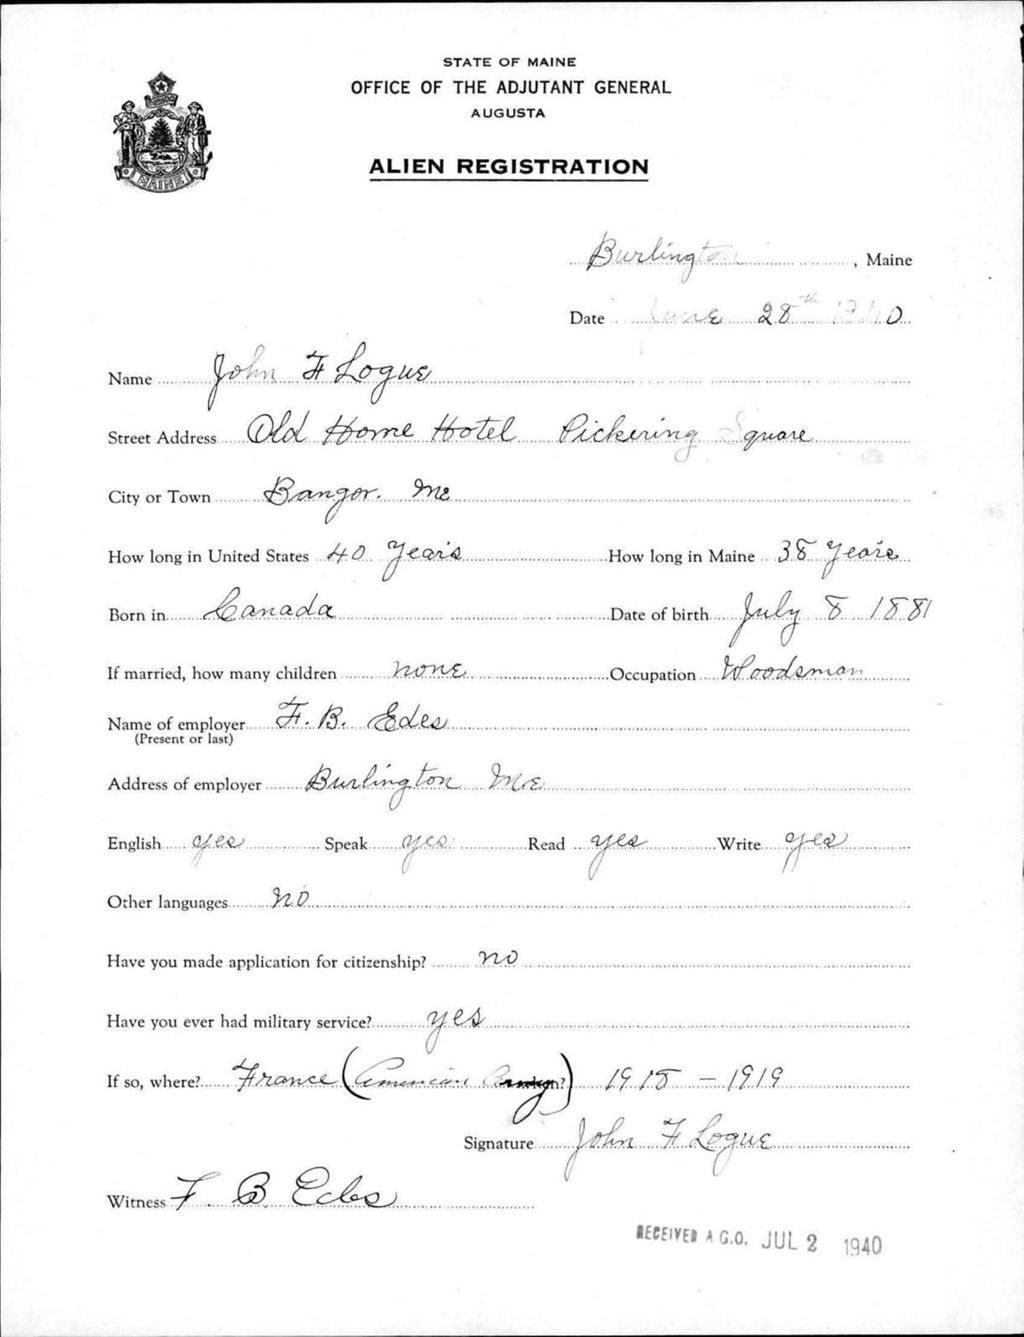 STATE OF MAINE
OFFICE OF THE ADJUTANT GENERAL
AUGUSTA
ALIEN REGISTRATION
MAINE
Burlington, Maine
Date June 28th 1940
Name John F Logue
Street Address Old Home Hotel Pickering Square
City or Town Bangor. Me
How long in United States 40 years How long in Maine 38 years
Born in Canada Date of birth July 8 1881
If married, how many children none Occupation Woodsman
Name of employer F. B. Edes
(Present or last)
Address of employer Burlington Me
English yes Speak yes Read yes Write yes
Other languages no
Have you made application for citizenship? no
Have you ever had military service? yes
If so, where? France (American Army) 1918 - 1919
Signature John F Logue
Witness F. B. Edes
RECEIVED A.G.O. JUL 2 1940